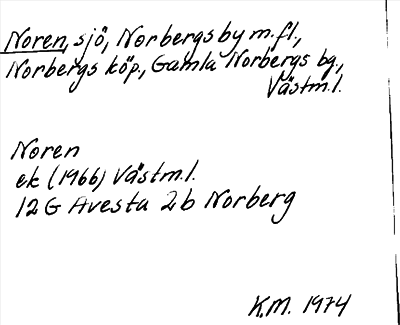 Noren, sjö, Norbergsby m.fl.,
Norbergs köp., Gamla Norbergs bg.,
Västm.l.
Noren
ek (1966) Västm.l.
12 G Avesta 2b Norberg
K.M. 1974